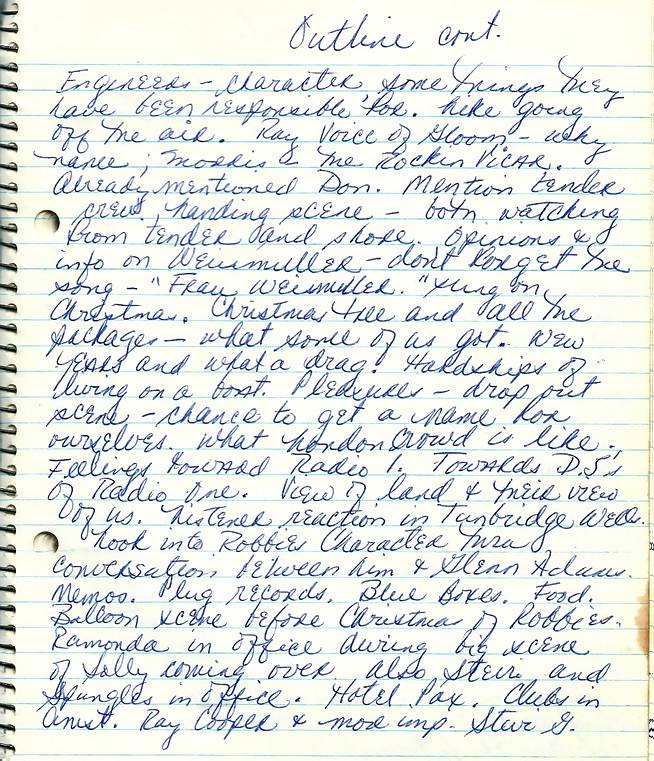 Outline cont.
Engineers - character, some things they
have been responsible for. Like going
off the air. Ray Voice of Gloom - why
name; Morris & the Rockin Vicar.
Already mentioned Don. Mention tender
crew, landing scene - both watching
from tender and shore. Opinions &
info on Weismuller - don't forget the
song - "Frau Weismuller." on
Christmas. Christmas tree and all the
packages - what some of us got. New
Years and what a drag. Hardships of
living on a boat. Pleasures - drop out
scene - chance to get a name for
ourselves. What London Crowd is like.
Feelings toward Radio 1. Towards D.J.'s
of Radio One. View of land & their view
of us. Listener reaction in Tunbridge Wells.
Look into Robbies Character thru
conversation between him & Glenn Adams.
Memos. Plug records. Blue Boxes. Food.
Balloon scene before Christmas of Robbies.
Ramonda in office during big scene
of Sally coming over. Also Stevi and
Spangles in office. Hotel Pax. Clubs in
Amst. Ray Cooper & more imp. Stevi G.